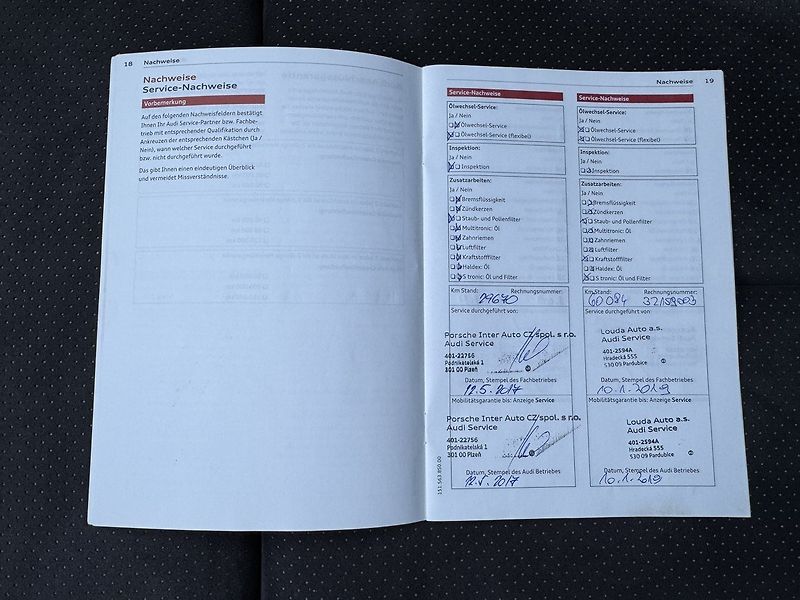 18 Nachweise
Nachweise
Service-Nachweise
Vorbemerkung
Auf den folgenden Nachweisfeldern bestätigt
Ihnen Ihr Audi Service-Partner bzw. Fachbe-
trieb mit entsprechender Qualifikation durch
Ankreuzen der entsprechenden Kästchen (Ja /
Nein), wann welcher Service durchgeführt
bzw. nicht durchgeführt wurde.
Das gibt Ihnen einen eindeutigen Überblick
und vermeidet Missverständnisse.
Nachweise 19
Service-Nachweise
Ölwechsel-Service:
Ja / Nein
Ölwechsel-Service
Ölwechsel-Service (flexibel)
Inspektion:
Ja / Nein
Inspektion
Zusatzarbeiten:
Ja / Nein
Bremsflüssigkeit
Zündkerzen
Staub- und Pollenfilter
Multitronic: Öl
Zahnriemen
Luftfilter
Kraftstofffilter
Haldex: Öl
S tronic: Öl und Filter
Km Stand: Rechnungsnummer:
29670
Service durchgeführt von:
Porsche Inter Auto CZ spol. s r.o.
Audi Service
401-22756
Podnikatelská 1
301 00 Plzeň
Datum, Stempel des Fachbetriebes
12.5.2017
Mobilitätsgarantie bis: Anzeige Service
Porsche Inter Auto CZ spol. s r.o.
Audi Service
401-22756
Podnikatelská 1
301 00 Plzeň
Datum, Stempel des Audi Betriebes
12.5.2017
151.563.RS0.00
Service-Nachweise
Ölwechsel-Service:
Ja / Nein
Ölwechsel-Service
Ölwechsel-Service (flexibel)
Inspektion:
Ja / Nein
Inspektion
Zusatzarbeiten:
Ja / Nein
Bremsflüssigkeit
Zündkerzen
Staub- und Pollenfilter
Multitronic: Öl
Zahnriemen
Luftfilter
Kraftstofffilter
Haldex: Öl
S tronic: Öl und Filter
Km Stand: Rechnungsnummer:
60084 32159003
Service durchgeführt von:
Louda Auto a.s.
Audi Service
401-2594A
Hradecká 555
530 09 Pardubice
Datum, Stempel des Fachbetriebes
10.1.2019
Mobilitätsgarantie bis: Anzeige Service
Louda Auto a.s.
Audi Service
401-2594A
Hradecká 555
530 09 Pardubice
Datum, Stempel des Audi Betriebes
10.1.2019